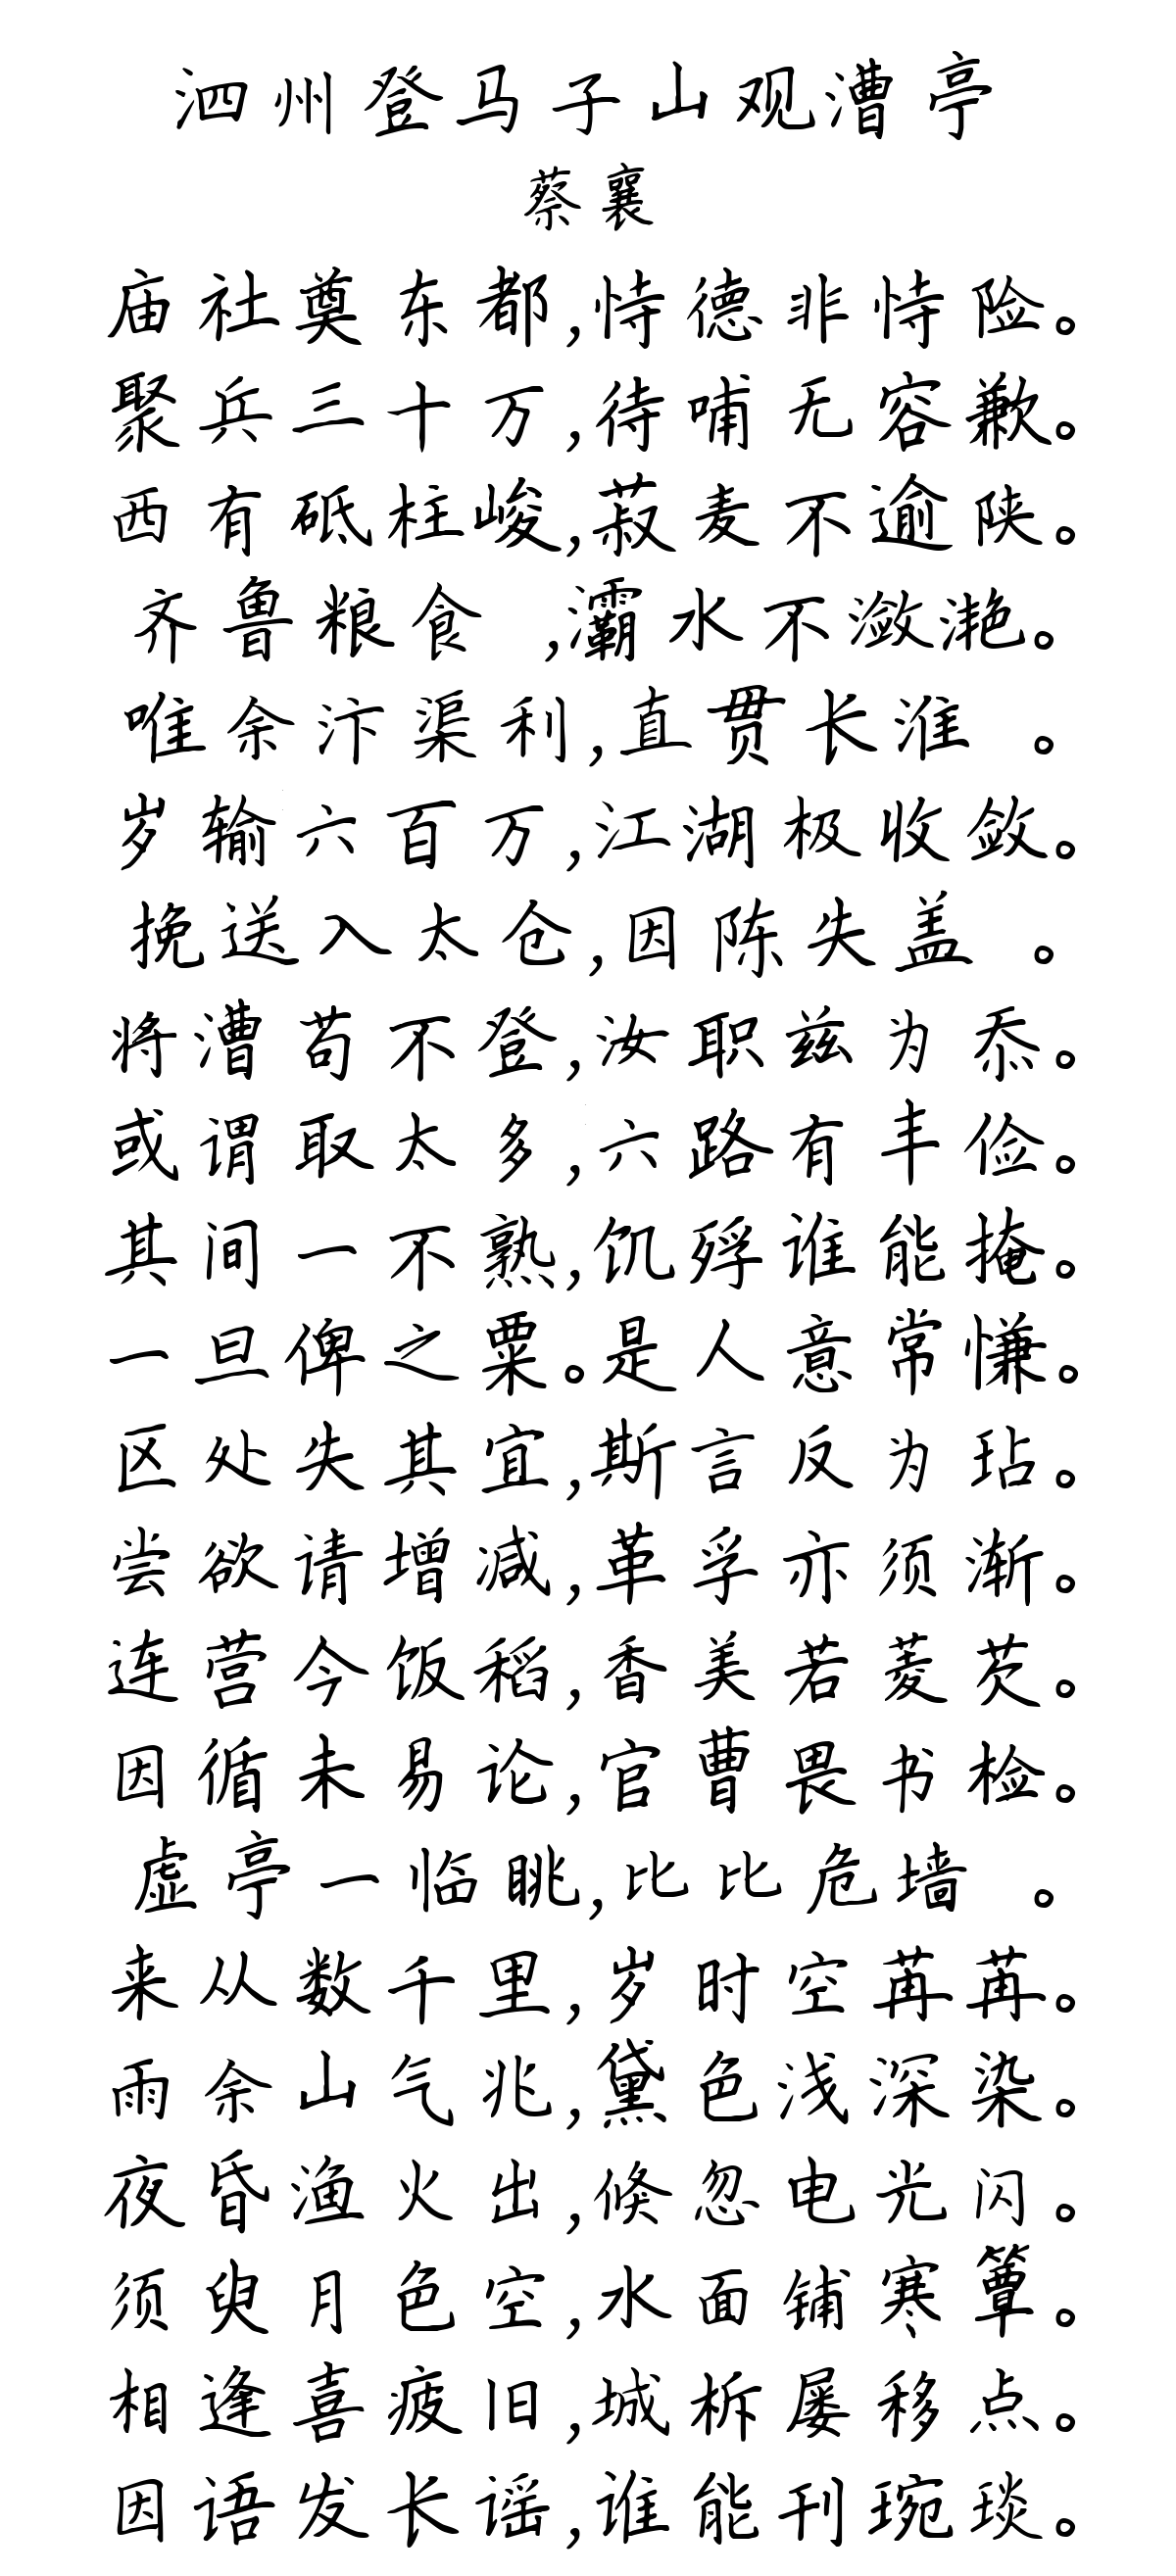 泗州登马子山观漕亭
蔡襄
庙社奠东都,恃德非恃险。
聚兵三十万,待哺无容歉。
西有砥柱峻,菽麦不逾陕。
齐鲁粮食 ,灞水不潋滟。
唯余汴渠利,直贯长淮 。
岁输六百万,江湖极收敛。
挽送入太仓,因陈失盖 。
将漕苟不登,汝职兹为忝。
或谓取太多,六路有丰俭。
其间一不熟,饥殍谁能掩。
一旦俾之粟。是人意常慊。
区处失其宜,斯言反为玷。
尝欲请增减,革孚亦须渐。
连营今饭稻,香美若菱芡。
因循未易论,官曹畏书检。
虚亭一临眺,比比危墙 。
来从数千里,岁时空苒苒。
雨余山气兆,黛色浅深染。
夜昏渔火出,倏忽电光闪。
须臾月色空,水面铺寒簟。
相逢喜疲旧,城柝屡移点。
因语发长谣,谁能刊琬琰。